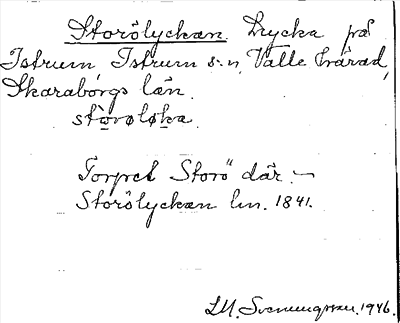 Storölyckan. Lycka på
Istrum Istrum s:n, Valle härad,
Skaraborgs län.
storoloka
Torpet Storö där. –
Storölyckan lm. 1841.
I.M. Svenungsson. 1946.